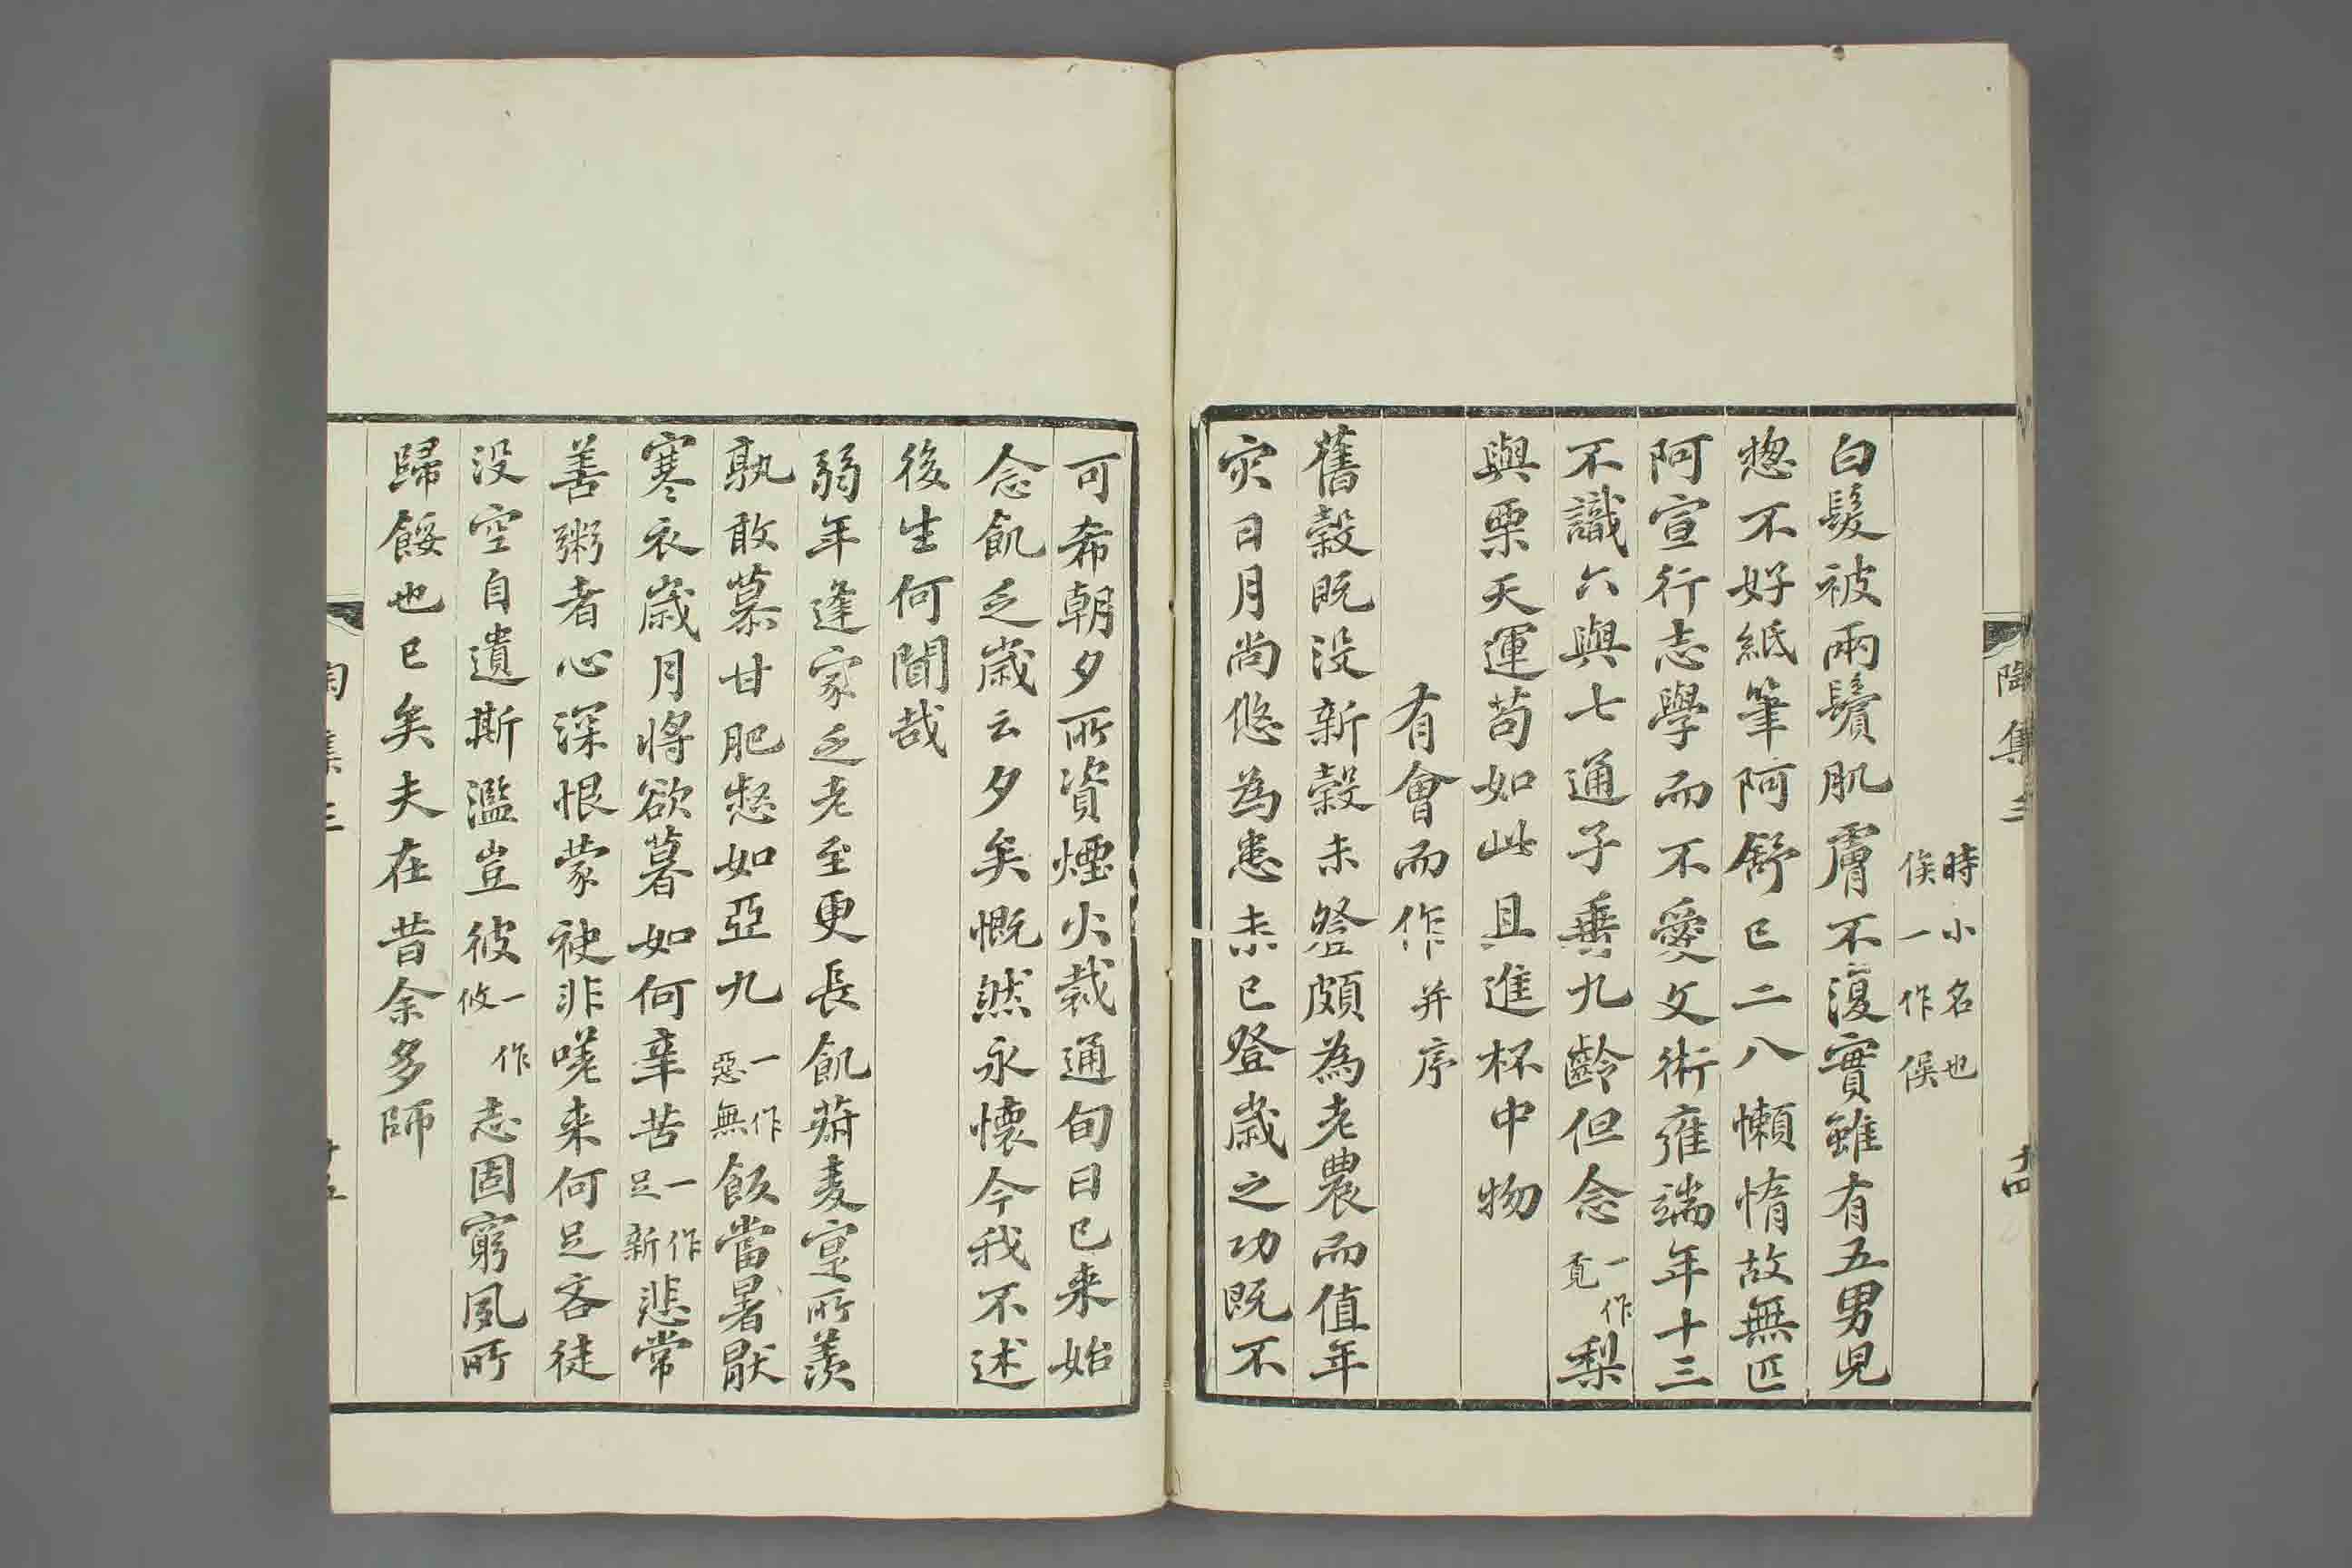 陶集三 十四
時小名也
俟一作俁
白髮被兩鬢肌膚不復實雖有五男兒
揔不好紙筆阿舒巳二八懶惰故無匹
阿宣行志學而不愛文術雍端年十三
不識六與七通子垂九齡但念一作覓梨
與栗天運苟如此且進杯中物
有會而作并序
舊穀既没新穀未登頗為老農而值年
灾日月尚悠為患未巳登歲之功既不
可希朝夕所資煙火裁通旬日巳来始
念飢乏歲云夕矣慨然永懷今我不述
後生何聞哉
弱年逢家乏老至更長飢菽麦寔所羨
孰敢慕甘肥惄如亞九一作惡無飯當暑厭
寒衣歲月將欲暮如何辛苦一作足新悲常
善粥者心深恨蒙袂非嗟来何足吝徒
没空自遺斯濫豈彼一作攸志固窮夙所
歸餒也巳矣夫在昔余多師
陶集三 十五